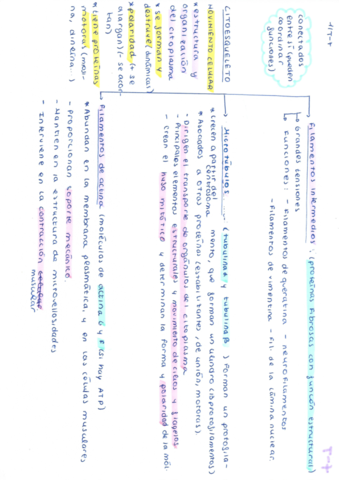 CITOESQUELETO
MOVIMIENTO CELULAR
*estructura y
organización
del citoplasma
*se forman y
destruye(dinámicos)
*polaridad (+ se
alargan/- se acor-
tan)
*tiene proteínas
motoras (mios-
na, dineína,
conectados
entre sí (pueden
coordinar
funciones)
Filamentos intermedios: (proteínas fibrosas con función estructural)
Grandes tensiones
Funciones: - Filamentos de queratina - neurofilamentos
- Filamentos de vimentina - fil. de la lámina nuclear.
Microtúbulos (tubulina α y tubulina β) Forman un protofila-
mento, que forman un cilindro (13 protofilamentos)
*crecen a partir del
centrosoma
*Asociados a otras proteínas (estabilizantes, de unión, motoras).
- Dirigen el transporte de orgánulos del citoplasma
- Principales elementos estructurales y movimiento de cilios y flagelos
- Crean el huso mitótico y determinan la forma y polaridad de la
Filamentos de actina (moléculas de actina G y F. Si hay ATP)
*Abundan en la membrana plasmática, y en las células musculares
- Proporcionan soporte mecánico.
- Mantienen la estructura de microvellosidades
- Interviene en la contracción
muscular